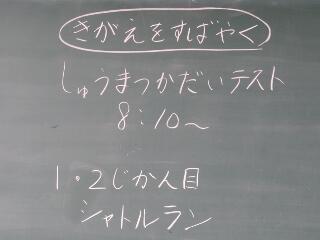 きがえをすばやく
しゅうまつかだいテスト
8:10〜
1・2じかん目
シャトルラン